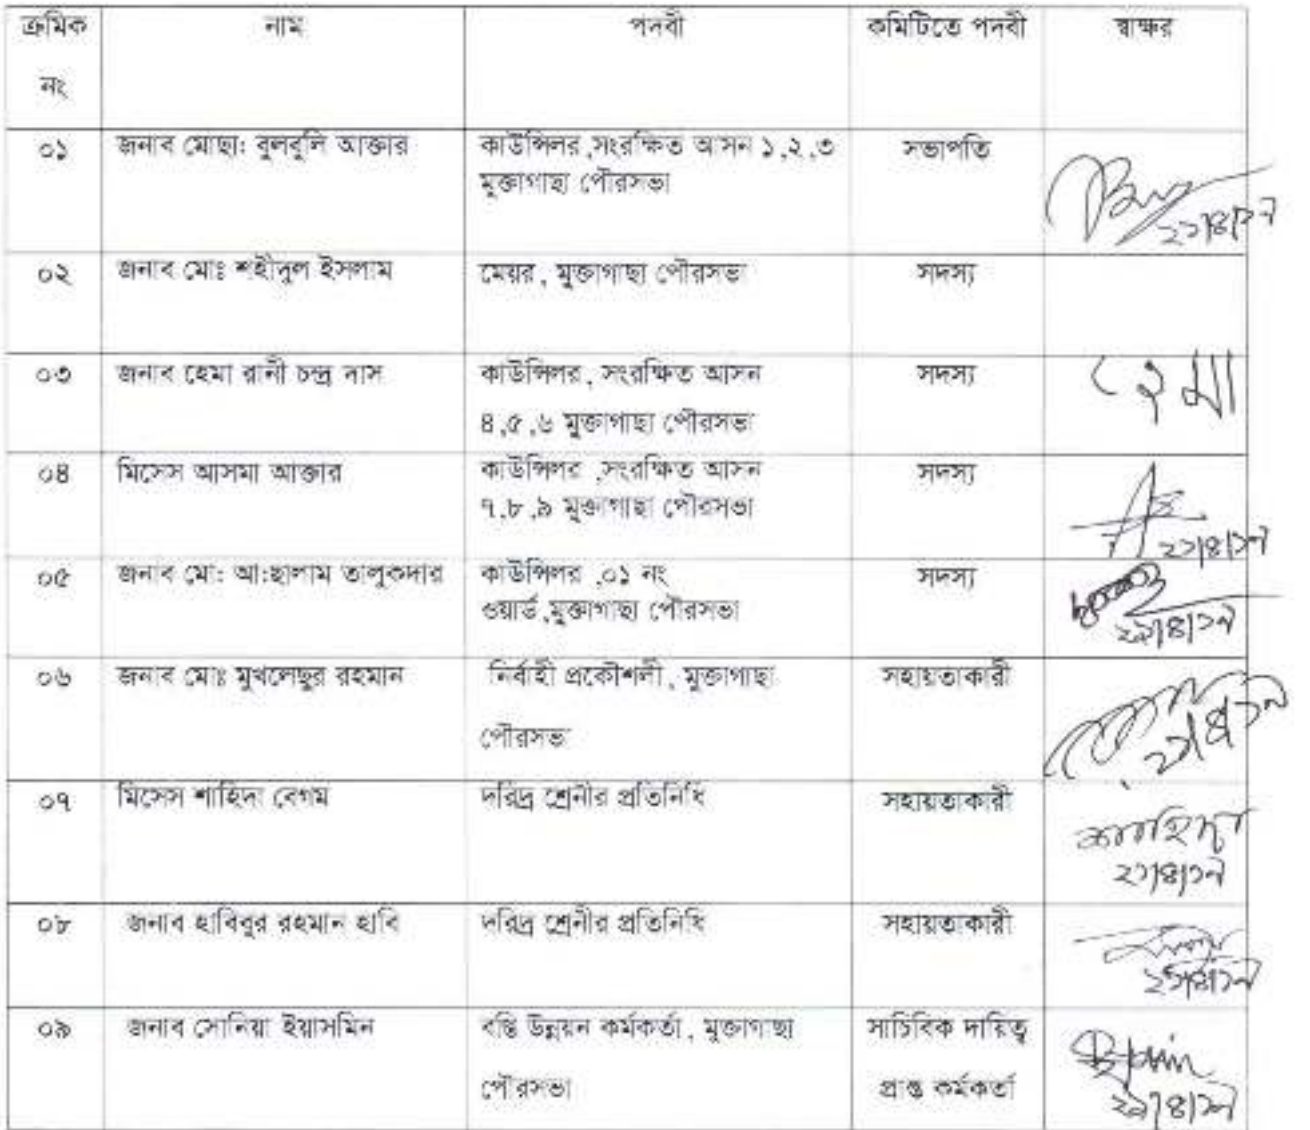 ক্রমিক নং নাম পদবী কমিটিতে পদবী স্বাক্ষর
০১ জনাব মোছা: বুলবুলি আক্তার কাউন্সিলর ,সংরক্ষিত আসন ১,২,৩ সভাপতি
মুক্তাগাছা পৌরসভা
২১|৪|১৭
০২ জনাব মোঃ শহীদুল ইসলাম মেয়র, মুক্তাগাছা পৌরসভা সদস্য
০৩ জনাব হেমা রানী চন্দ্র দাস কাউন্সিলর, সংরক্ষিত আসন সদস্য হেমা
৪,৫,৬ মুক্তাগাছা পৌরসভা
০৪ মিসেস আসমা আক্তার কাউন্সিলর ,সংরক্ষিত আসন সদস্য
৭,৮,৯ মুক্তাগাছা পৌরসভা
২১|৪|১৭
০৫ জনাব মো: আ:ছালাম তালুকদার কাউন্সিলর ,০১ নং সদস্য
ওয়ার্ড,মুক্তাগাছা পৌরসভা
২১|৪|১৭
০৬ জনাব মোঃ মুখলেছুর রহমান নির্বাহী প্রকৌশলী, মুক্তাগাছা সহায়তাকারী
পৌরসভা
২১|৪|১৭
০৭ মিসেস শাহিদা বেগম দরিদ্র শ্রেনীর প্রতিনিধি সহায়তাকারী
শাহিদা
২১|৪|১৭
০৮ জনাব হাবিবুর রহমান হাবি দরিদ্র শ্রেনীর প্রতিনিধি সহায়তাকারী
২১|৪|১৭
০৯ জনাব সোনিয়া ইয়াসমিন বস্তি উন্নয়ন কর্মকর্তা, মুক্তাগাছা সাচিবিক দায়িত্ব
পৌরসভা প্রাপ্ত কর্মকর্তা
২১|৪|১৭